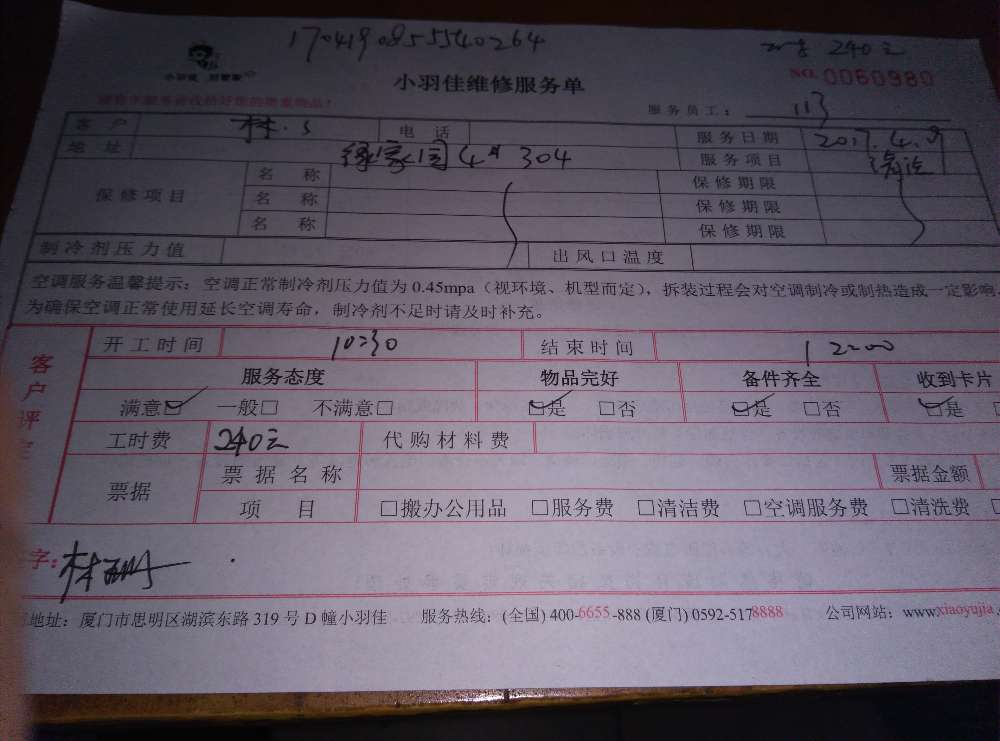 1704190855540264
240元
小羽佳维修服务单
NO.0060980
服务员工：113
客户 林.S 电话 服务日期 2017.4.19
地址 4# 304 服务项目 清洗
保修项目 名称 保修期限
名称 保修期限
名称 保修期限
制冷剂压力值 出风口温度
空调服务温馨提示：空调正常制冷剂压力值为 0.45mpa（视环境、机型而定），拆装过程会对空调制冷或制热造成一定影响，
为确保空调正常使用延长空调寿命，制冷剂不足时请及时补充。
客户评
开工时间 10:30 结束时间 12:00
服务态度 物品完好 备件齐全 收到卡片
满意☑ 一般□ 不满意□ ☑是 □否 ☑是 □否 ☑是
工时费 240元 代购材料费
票据 票据名称 票据金额
项目 □搬办公用品 □服务费 □清洁费 □空调服务费 □清洗费
字：
地址：厦门市思明区湖滨东路 319 号 D 幢小羽佳 服务热线：(全国) 400-6655-888 (厦门) 0592-5178888 公司网站：www.xiaoyujia.